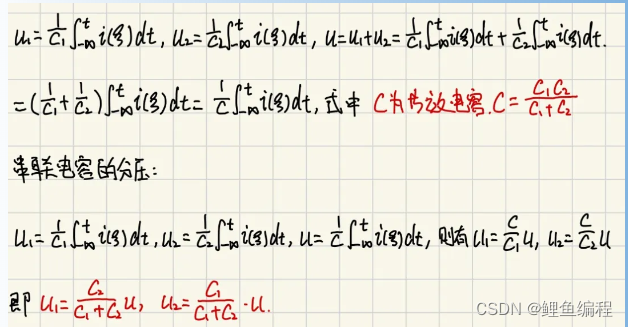 u₁=1/C₁∫₋∞ᵗ i(ξ)dt, u₂=1/C₂∫₋∞ᵗ i(ξ)dt, u=u₁+u₂=1/C₁∫₋∞ᵗ i(ξ)dt+1/C₂∫₋∞ᵗ i(ξ)dt.
=(1/C₁+1/C₂)∫₋∞ᵗ i(ξ)dt=1/C∫₋∞ᵗ i(ξ)dt, 式中 C为等效电容.C=C₁C₂/(C₁+C₂)
串联电容的分压:
u₁=1/C₁∫₋∞ᵗ i(ξ)dt, u₂=1/C₂∫₋∞ᵗ i(ξ)dt, u=1/C∫₋∞ᵗ i(ξ)dt, 则有 u₁=C/C₁u, u₂=C/C₂u
即 u₁=C₂/(C₁+C₂)u, u₂=C₁/(C₁+C₂)·u.
CSDN @鲤鱼编程